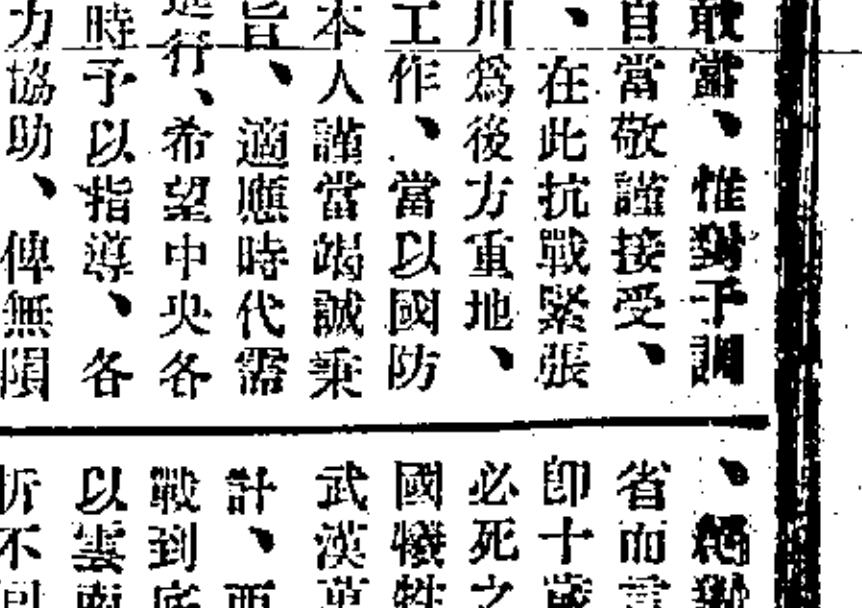 敢當、惟對于調
自當敬謹接受、
、在此抗戰緊張
川爲後方重地、
工作、當以國防
本人謹當竭誠秉
旨、適應時代需
進行、希望中央各
時予以指導、各
力協助、俾無隕
、絕對
省而言
卽十歲
必死之
國犧牲
武漢東
計、西
戰到底
以雲南
折不回